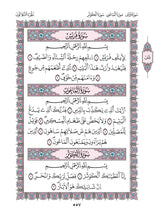 سُورَةُ قُرَيْشٍ
بِسْمِ اللَّهِ الرَّحْمَٰنِ الرَّحِيمِ
لِإِيلَٰفِ قُرَيْشٍ ١ إِۦلَٰفِهِمْ رِحْلَةَ ٱلشِّتَآءِ وَٱلصَّيْفِ ٢
فَلْيَعْبُدُوا۟ رَبَّ هَٰذَا ٱلْبَيْتِ ٣ ٱلَّذِىٓ أَطْعَمَهُم مِّن جُوعٍ
وَءَامَنَهُم مِّنْ خَوْفٍۭ ٤
سُورَةُ المَاعُونِ
بِسْمِ اللَّهِ الرَّحْمَٰنِ الرَّحِيمِ
أَرَءَيْتَ ٱلَّذِى يُكَذِّبُ بِٱلدِّينِ ١ فَذَٰلِكَ ٱلَّذِى يَدُعُّ
ٱلْيَتِيمَ ٢ وَلَا يَحُضُّ عَلَىٰ طَعَامِ ٱلْمِسْكِينِ ٣ فَوَيْلٌ لِّلْمُصَلِّينَ
٤ ٱلَّذِينَ هُمْ عَن صَلَاتِهِمْ سَاهُونَ ٥ ٱلَّذِينَ هُمْ يُرَآءُونَ
٦ وَيَمْنَعُونَ ٱلْمَاعُونَ ٧
سُورَةُ الكَوْثَرِ
بِسْمِ اللَّهِ الرَّحْمَٰنِ الرَّحِيمِ
إِنَّآ أَعْطَيْنَٰكَ ٱلْكَوْثَرَ ١ فَصَلِّ لِرَبِّكَ وَٱنْحَرْ ٢
إِنَّ شَانِئَكَ هُوَ ٱلْأَبْتَرُ ٣